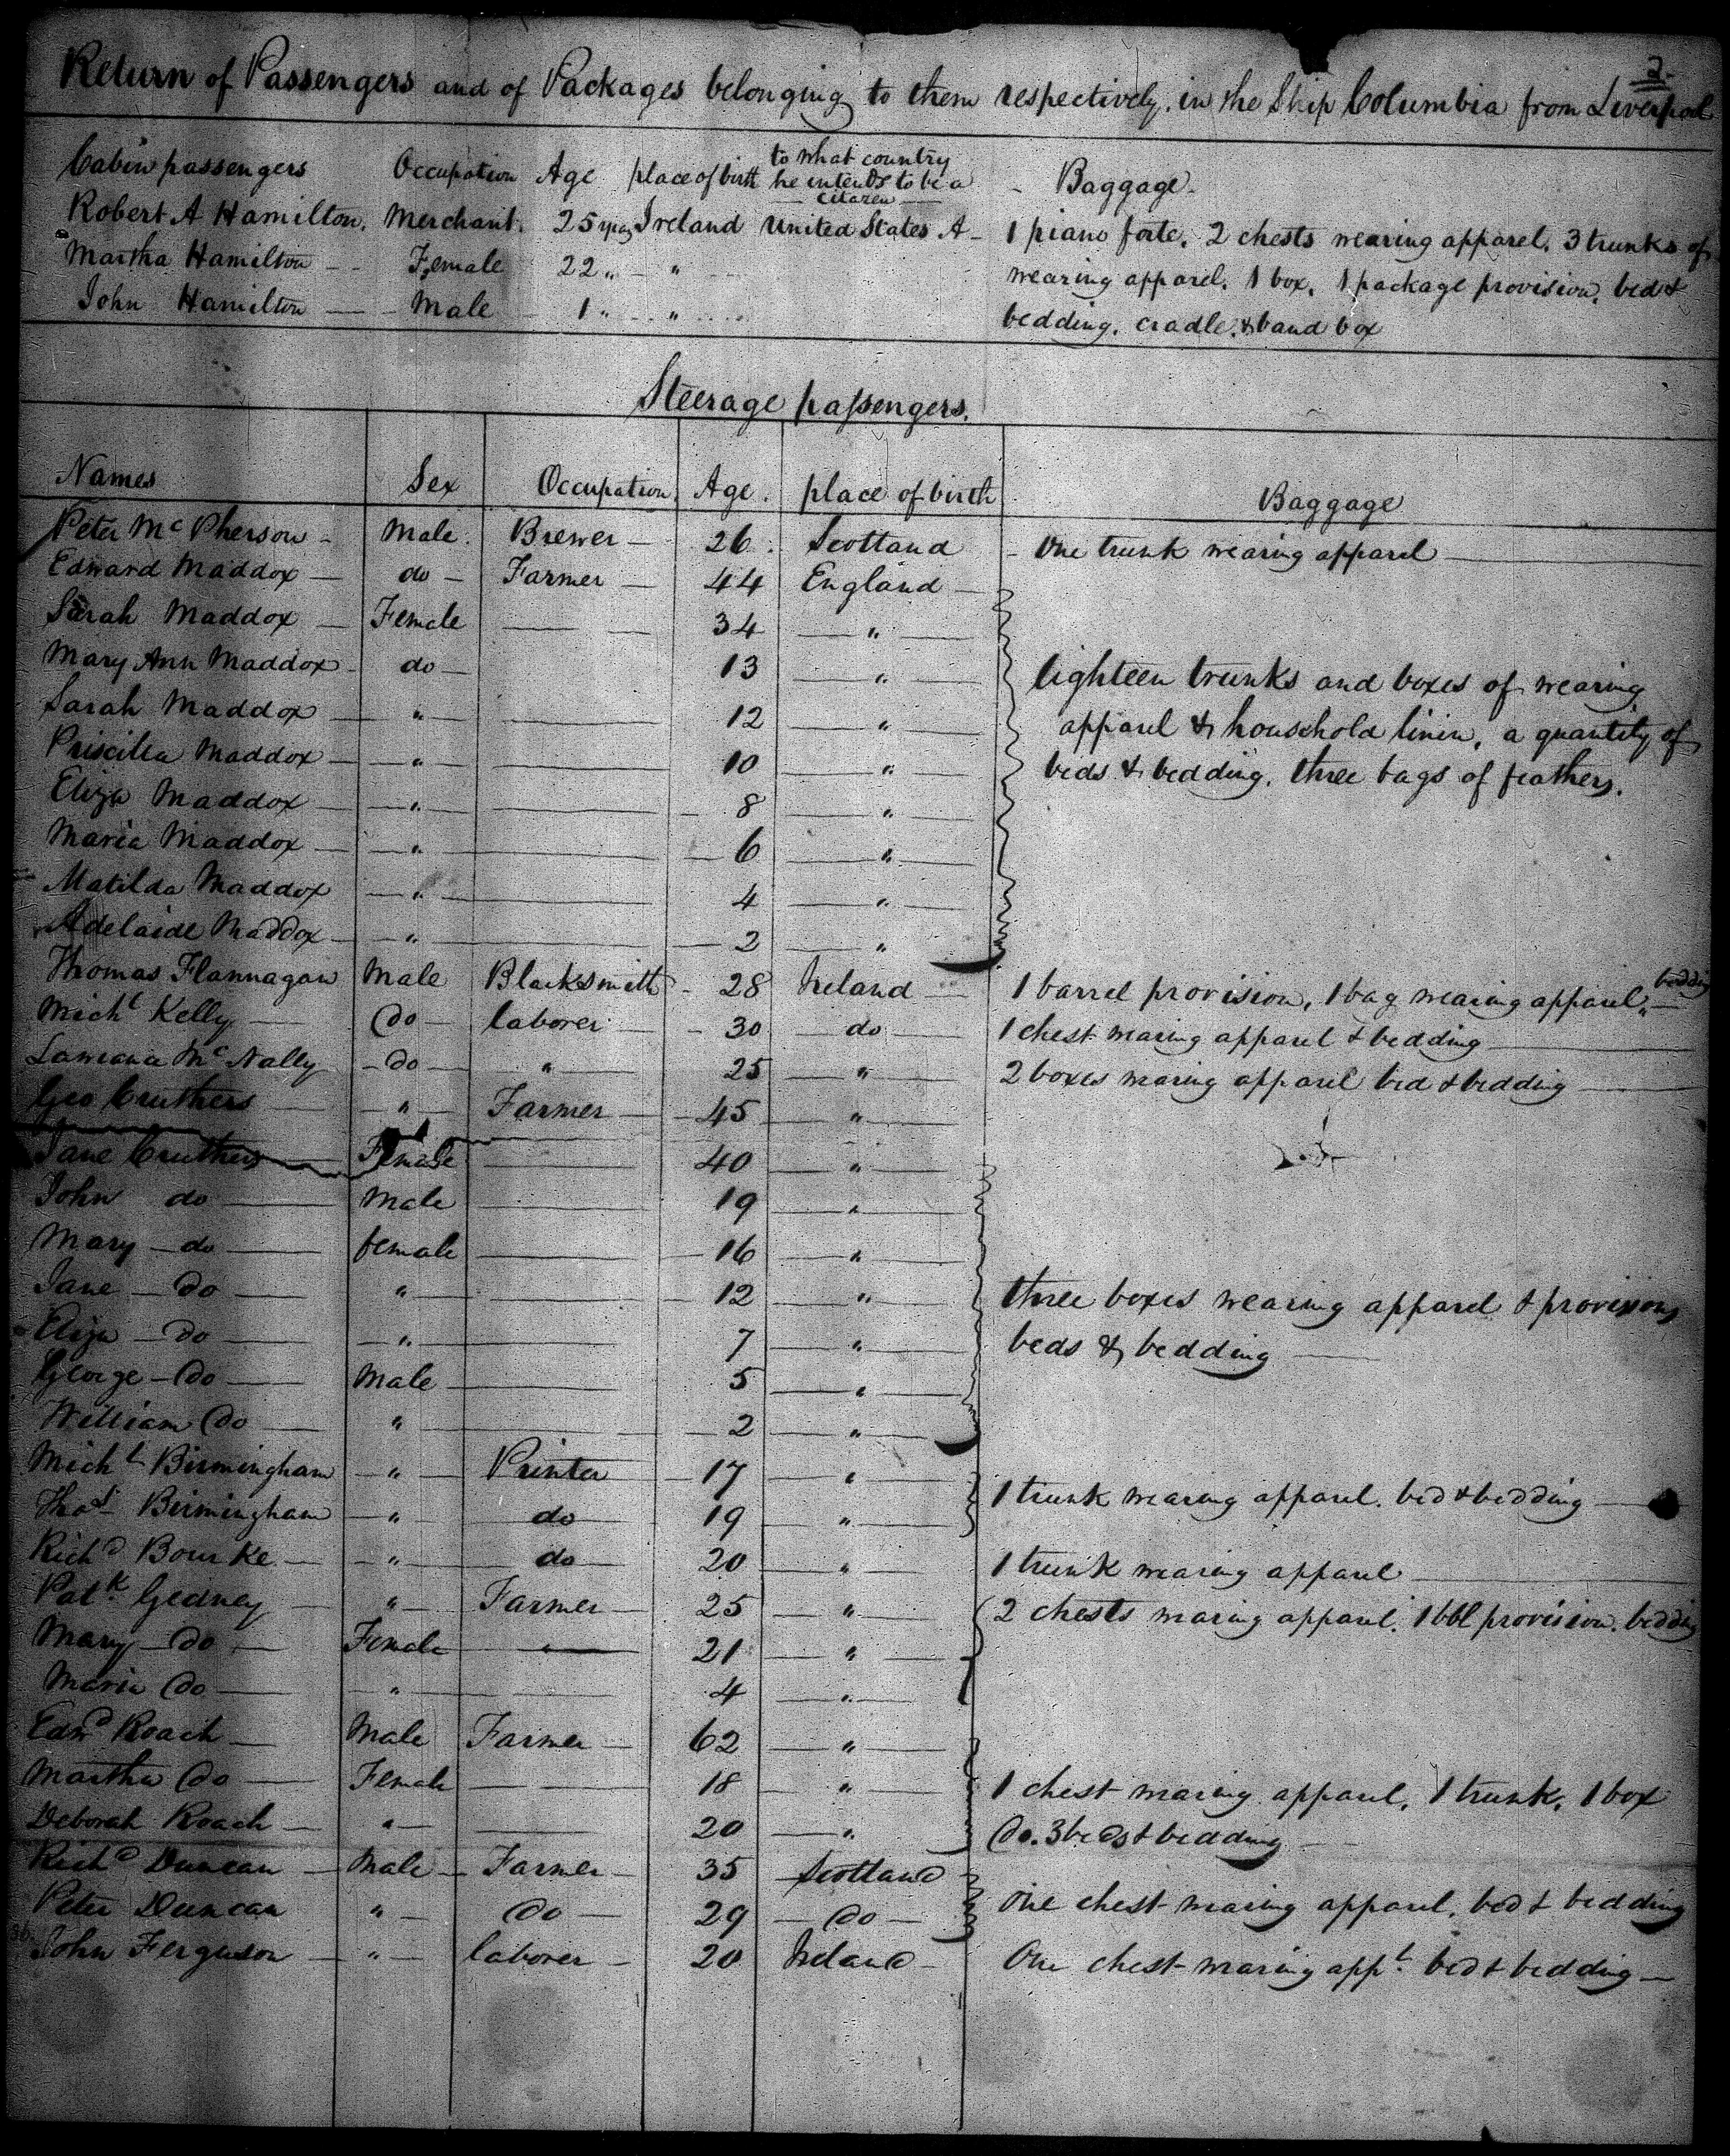 2.
Return of Passengers and of Packages belonging to them respectively. in the Ship Columbia from Liverpool
Cabin passengers Occupation Age place of birth to what country he intends to be a citizen Baggage
Robert A Hamilton. Merchant. 25 years Ireland United States A 1 piano forte. 2 chests wearing apparel. 3 trunks of
Martha Hamilton Female 22 " " wearing apparel. 1 box. 1 package provision. bed &
John Hamilton Male 1 " " bedding. cradle. & band box
Steerage passengers.
Names Sex Occupation. Age. place of birth Baggage
Peter Mc Pherson Male. Brewer 26. Scotland One trunk wearing apparel
Edward Maddox do Farmer 44 England
Sarah Maddox Female 34 "
Mary Ann Maddox do 13 " Eighteen trunks and boxes of wearing
Sarah Maddox " 12 " apparel & household linin, a quantity of
Priscilla Maddox " 10 " beds & bedding. three bags of feathers.
Eliza Maddox " 8 "
Maria Maddox " 6 "
Matilda Maddox " 4 "
Adelaide Maddox " 2 "
Thomas Flannagan Male Blacksmith 28 Ireland 1 barrel provision, 1 bag wearing apparel. bedding
Michl Kelly do laborer 30 do 1 chest wearing apparel & bedding
Mc Nally do " 25 " 2 boxes wearing apparel bed & bedding
Geo Cruthers " Farmer 45 "
Jane Cruthers Female 40 "
John do Male 19 "
Mary do female 16 "
Jane do " 12 " three boxes wearing apparel & provisions
Eliza do " 7 " beds & bedding
George do Male 5 "
William do " 2 "
Michl Birmingham " Printer 17 " 1 trunk wearing apparel. bed & bedding
Thos Birmingham " do 19 "
Richd Bourke " do 20 " 1 trunk wearing apparel
Patk Gedney " Farmer 25 " 2 chests wearing apparel. 1 bbl provision. bedding
Mary do Female " 21 "
Maria do " 4 "
Edwd Roach Male Farmer 62 "
Martha do Female 18 " 1 chest wearing apparel. 1 trunk. 1 box
Deborah Roach " 20 " do. 3 beds & bedding
Richd Duncan Male Farmer 35 Scotland
Peter Duncan " do 29 do One chest wearing apparel. bed & bedding
John Ferguson " laborer 20 Ireland One chest wearing appl. bed & bedding